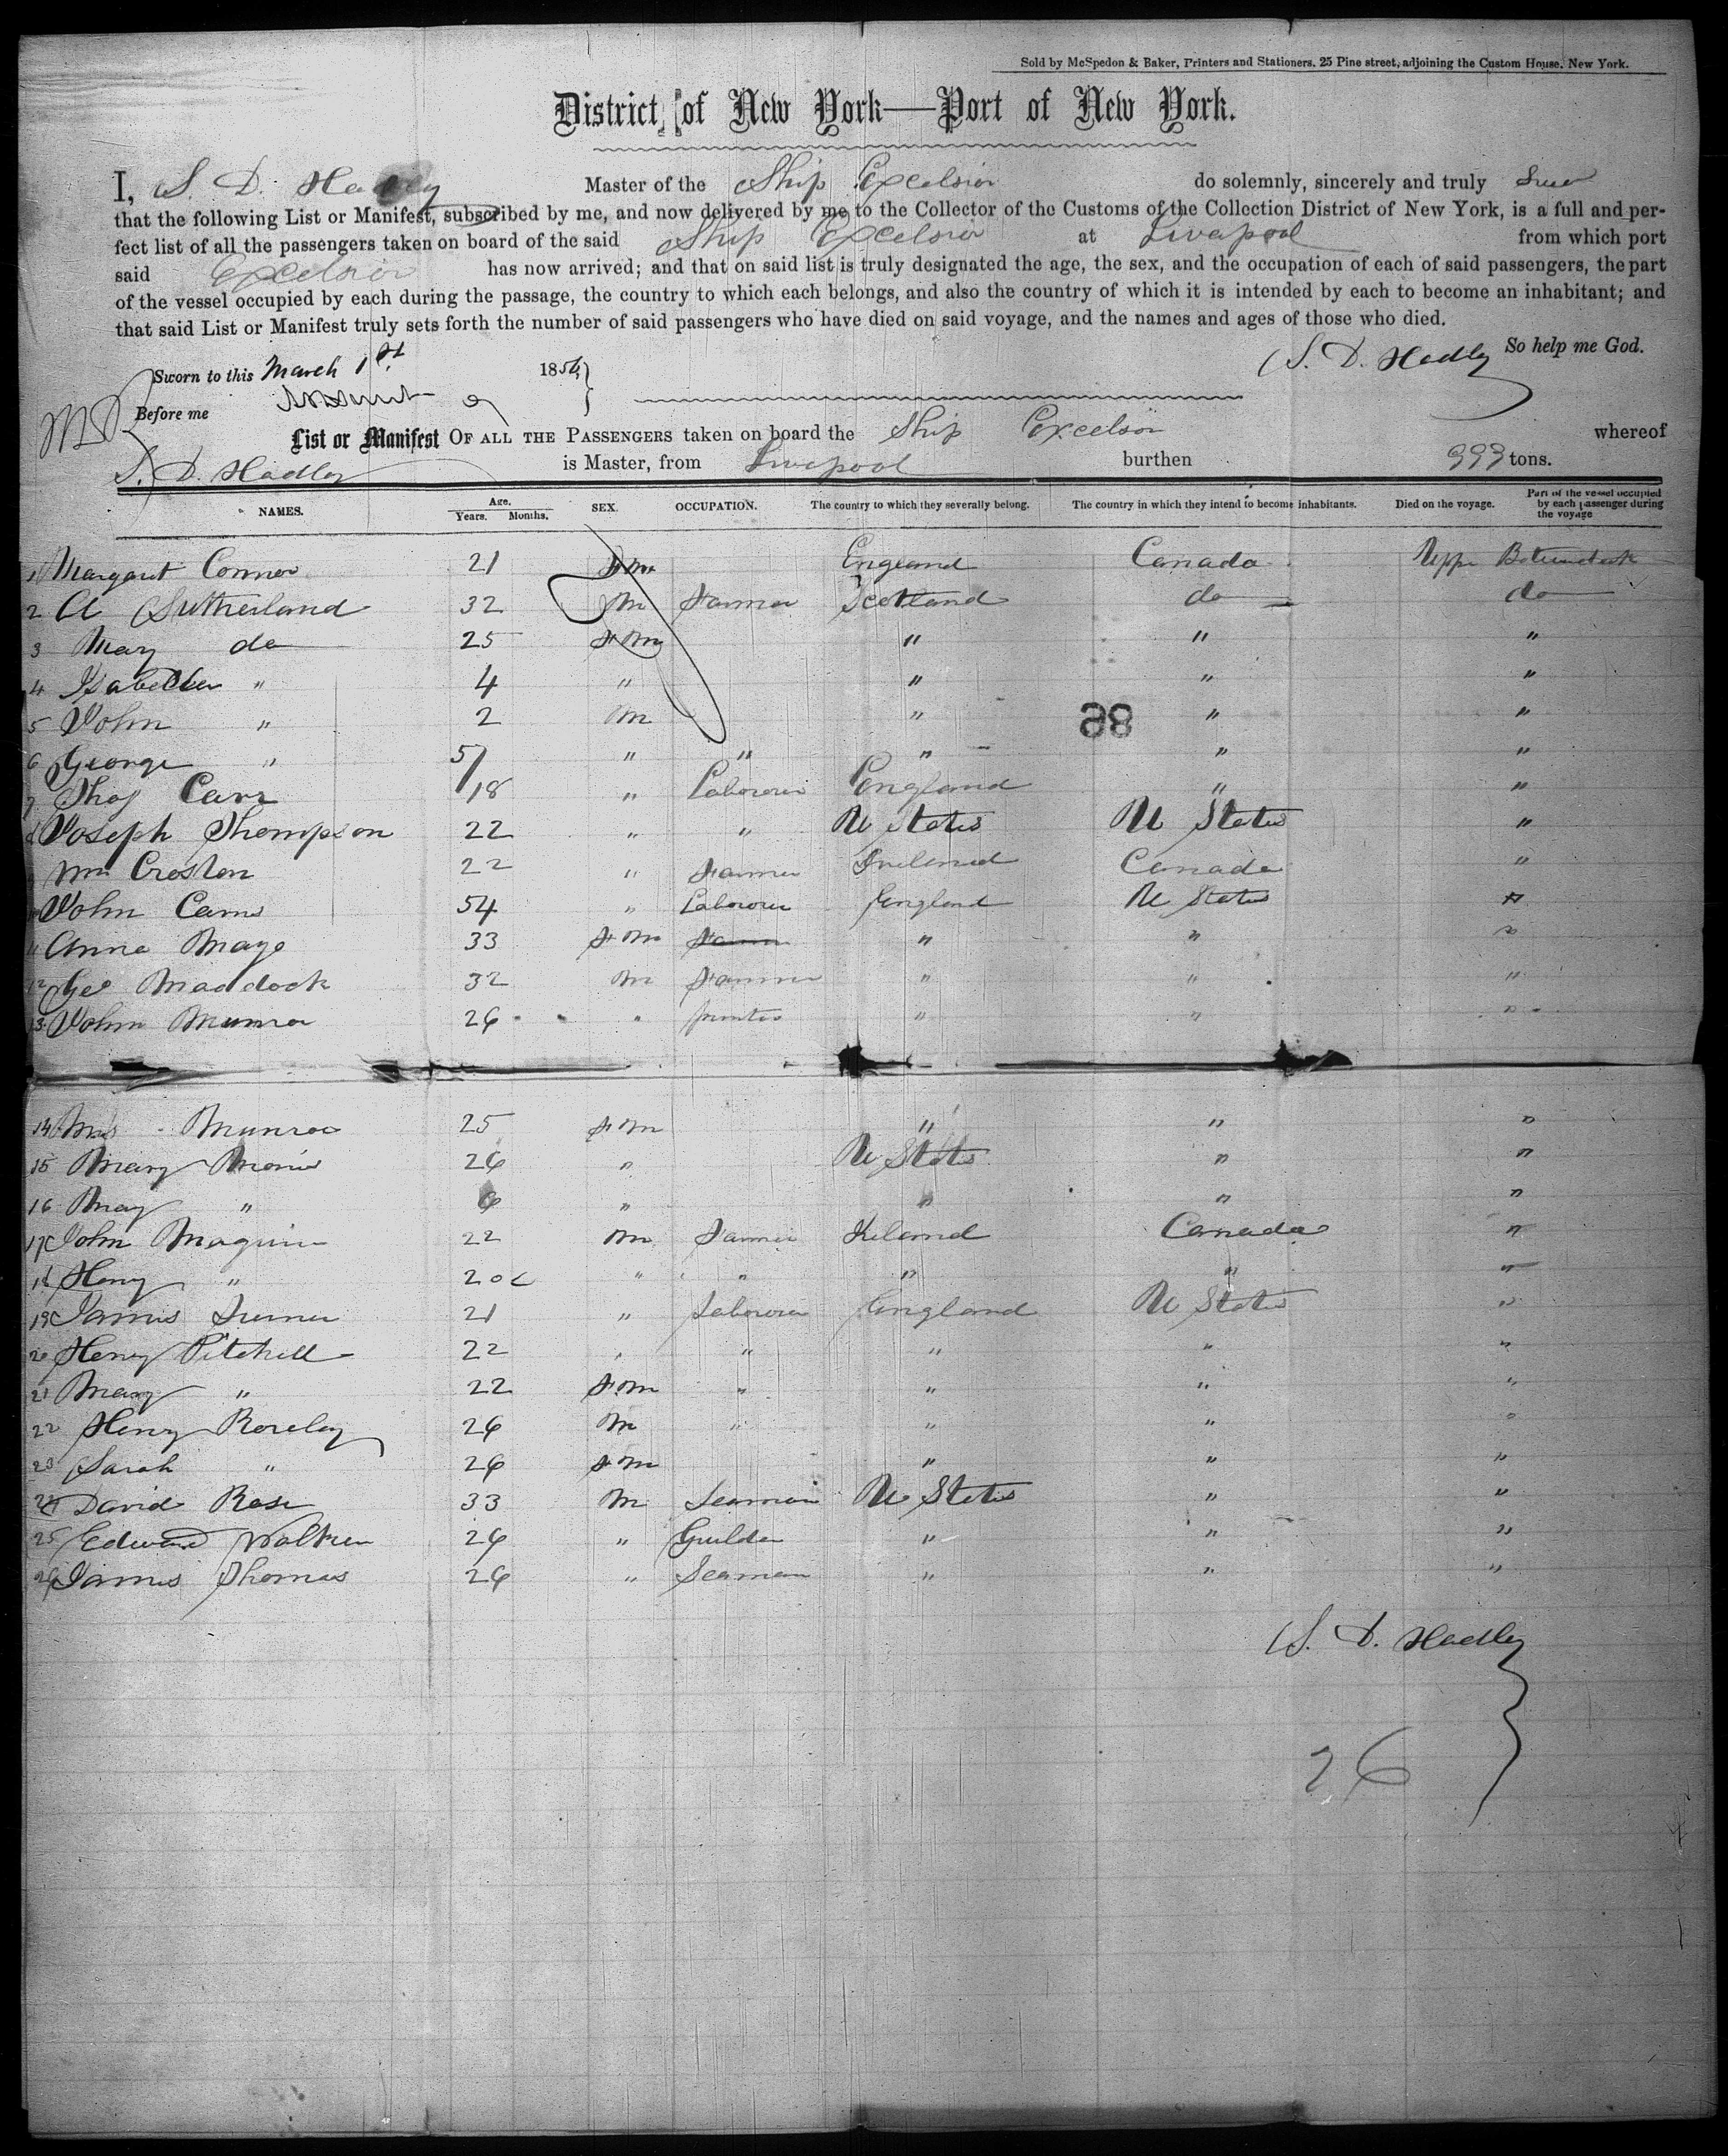 Sold by McSpedon & Baker, Printers and Stationers. 25 Pine street, adjoining the Custom House, New York.
District of New York—Port of New York.
I, S. D. Hadley Master of the Ship Excelsior do solemnly, sincerely and truly swear
that the following List or Manifest, subscribed by me, and now delivered by me to the Collector of the Customs of the Collection District of New York, is a full and per-
fect list of all the passengers taken on board of the said Ship Excelsior at Liverpool from which port
said Excelsior has now arrived; and that on said list is truly designated the age, the sex, and the occupation of each of said passengers, the part
of the vessel occupied by each during the passage, the country to which each belongs, and also the country of which it is intended by each to become an inhabitant; and
that said List or Manifest truly sets forth the number of said passengers who have died on said voyage, and the names and ages of those who died.
S. D. Hadley So help me God.
Sworn to this March 1st 1856
Before me
List or Manifest OF ALL THE PASSENGERS taken on board the Ship Excelsior whereof
S. D. Hadley is Master, from Liverpool burthen 993 tons.
NAMES. Age. Years. Months. SEX. OCCUPATION. The country to which they severally belong. The country in which they intend to become inhabitants. Died on the voyage. Part of the vessel occupied by each passenger during the voyage
1 Margaret Connor 21 Fm England Canada Upper Between deck
2 A Sutherland 32 M Farmer Scotland do do
3 Mary do 25 Fm " " "
4 Isabella " 4 " " " "
5 John " 2 M " " "
98
6 George " 5/ " " " " "
7 Thos Carr 18 " Laborer England " "
8 Joseph Thompson 22 " " U States U States "
9 Wm Croston 22 " Farmer Ireland Canada "
10 John Carns 54 " Laborer England U States "
11 Anna Mayo 33 Fm Farmer " " "
12 Geo Maddock 32 M Farmer " " "
13 John Munroe 26 " " " "
14 Mrs Munroe 25 Fm " " "
15 Mary Morris 26 " U States " "
16 May " 6 " " " "
17 John Maguire 22 M Farmer Ireland Canada "
18 Henry " 20 " " " " "
19 James Turner 21 " Laborer England U States "
20 Henry Pitchell 22 " " " " "
21 Mary " 22 Fm " " " "
22 Henry Roseley 26 M " " " "
23 Sarah " 26 Fm " " "
24 David Rose 33 M Seaman U States " "
25 Edward 26 " Guilder " " "
26 James Thomas 26 " Seaman " " "
S. D. Hadley
26